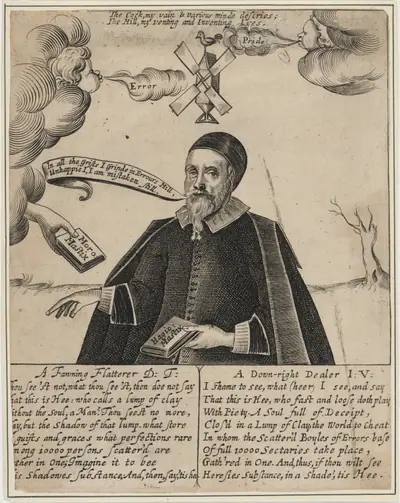 The Cock, my vain & various minde descries;
The Mill, my venting and Inventing Lyes.
Pride
Error
In all the grists I grinde in Errours Mill
Unhappie I, I am mistaken still
Moro
Mastix
Mastix
A Fawning Flatterer D: T:
hou see'st not, what thou see'st, then doe not say
hat this is Hee: who calls a lump of clay
ithout the soul, a Man? Thou seest no more,
ay, but the Shadow of that lump. what store
guifts and graces what perfections rare
mong 10000 persons scatterd are
ther in One; Imagine it to bee
is Shadowes Substance, And, then, say, tis hee
A Down-right Dealer I: V:
I Shame to see, what (heer) I see, and say
That this is Hee, who fast and loose doth play
With Pietie, A Soul full of Deceipt,
Clos'd in a Lump of Clay, the World to Cheat
In whom the Scatterd Boyles of Errors base
Of full 10000 Sectaries take place,
Gath'red in One. And, thus, if thou wilt see
Heresies Substance, in a Shade, tis Hee.